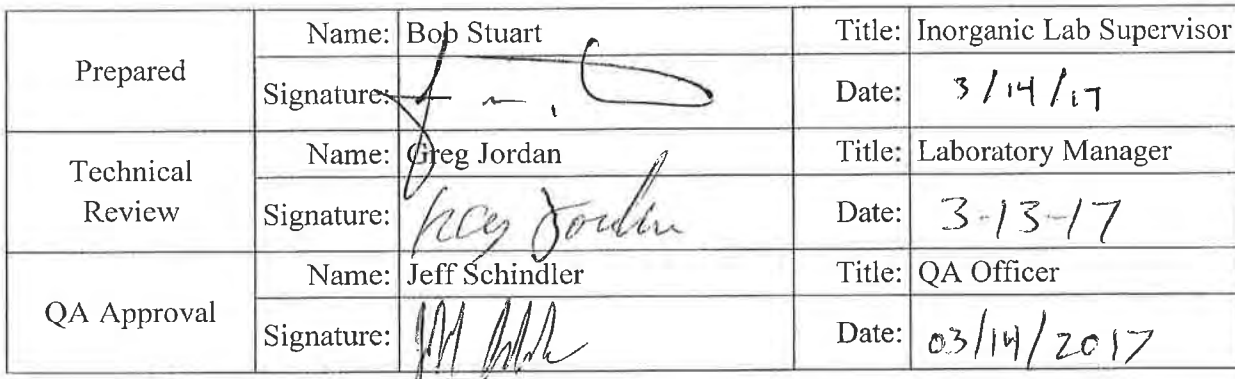 Prepared
Name: Bob Stuart Title: Inorganic Lab Supervisor
Signature: Date: 3/14/17
Technical Review
Name: Greg Jordan Title: Laboratory Manager
Signature: Greg Jordan Date: 3-13-17
QA Approval
Name: Jeff Schindler Title: QA Officer
Signature: Date: 03/14/2017